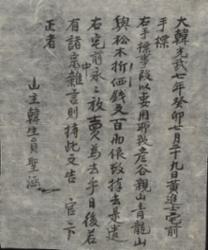 大韓光武七年癸卯七月二十九日黃進士宅前
手標
右手標事段以要用耶致彦谷親山靑龍山
與松木折価錢文百兩依數捧去是遣
右宅前永永放賣爲去乎日後若
有諸族雜言則持此文告官卞
正者
山主韓生員聖涵